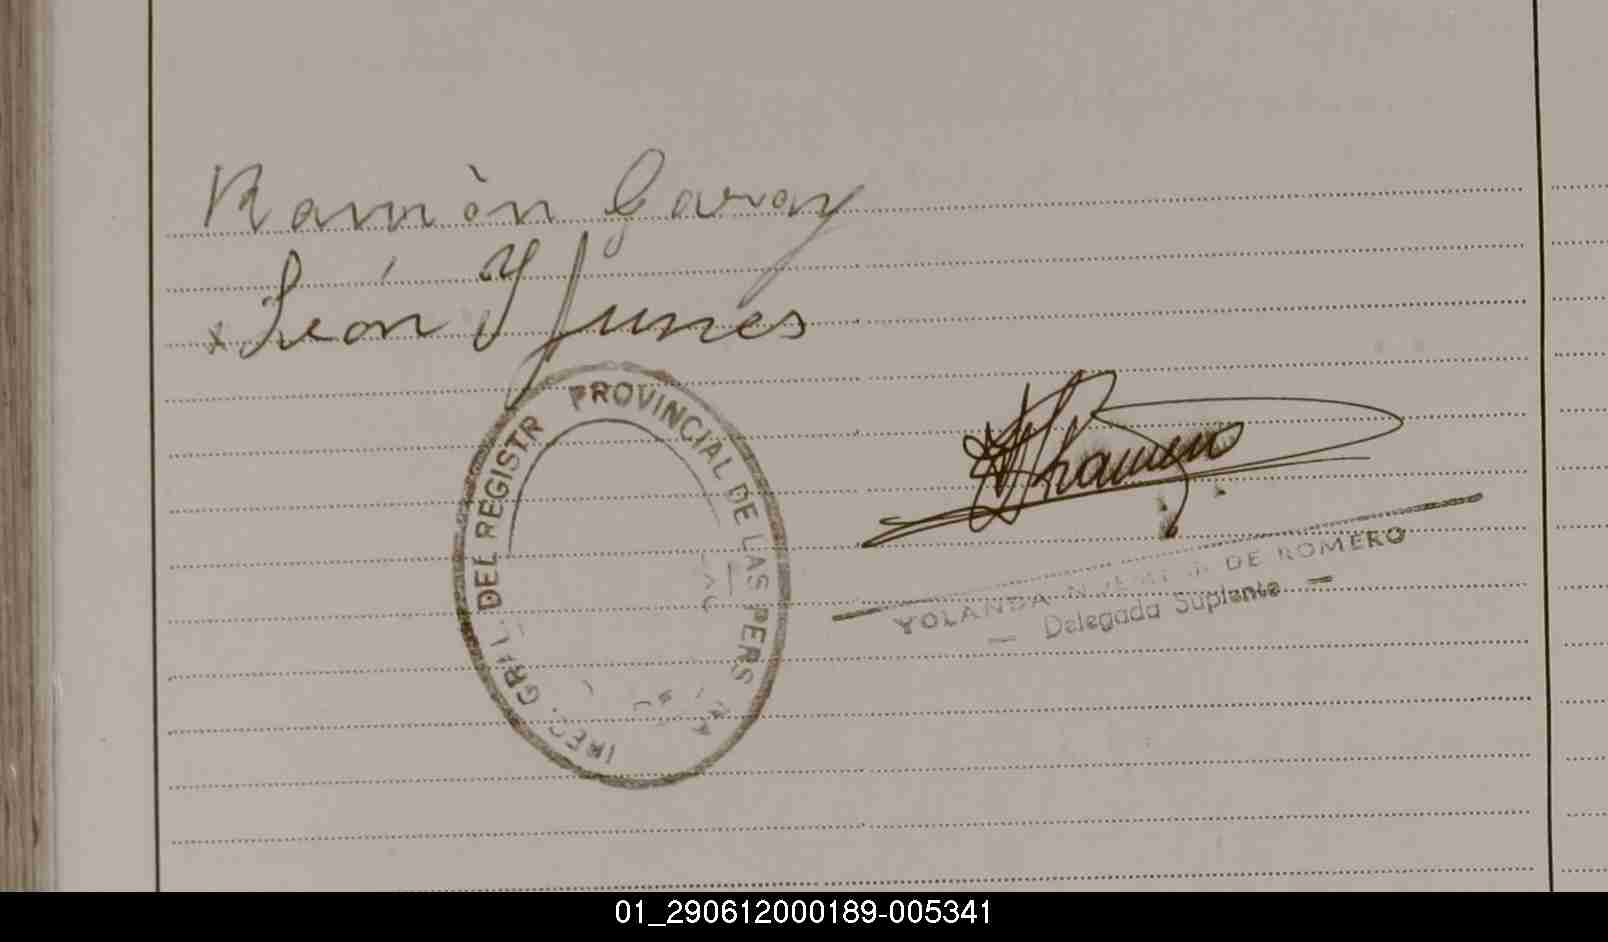 Ramòn Garay
x León Y Funes
DEL REGISTR PROVINCIAL DE LAS PERS
YOLANDA DE ROMERO
— Delegada Suplente —
01_290612000189-005341